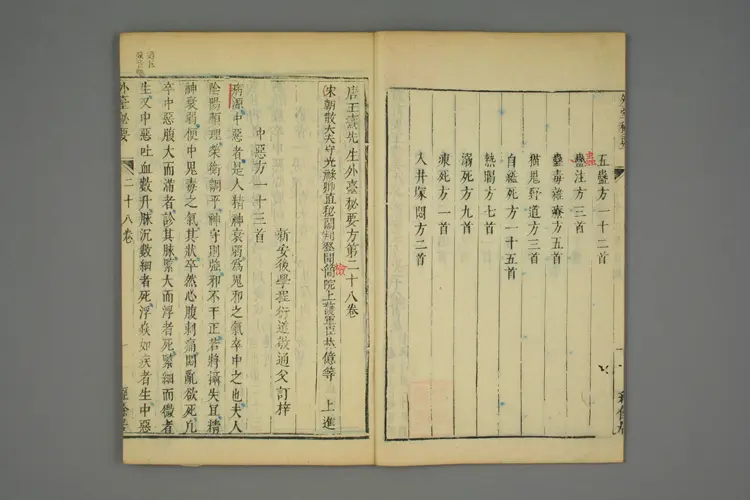 五蠱方一十二首
蠱注方三首
蠱
蠱毒雜療方五首
猫鬼野道方三首
自縊死方一十五首
熱暍方七首
溺死方九首
凍死方一首
入井塚悶方二首
唐王燾先生外臺秘要方第二十八卷
宋朝散大夫守光祿卿直秘閣判登聞簡院上護軍臣林億等上進
檢
新安後學程衍道敬通父訂梓
中惡方一十三首
病源中惡者是人精神衰弱為鬼邪之氣卒中之也夫人
陰陽順理榮衛調平神守則強邪不干正若將攝失宜精
神衰弱便中鬼毒之氣其狀卒然心腹刺痛悶亂欲死凡
卒中惡腹大而滿者診其脉緊大而浮者死緊細而微者
生又中惡吐血數升脉沉數細者死浮焱如疾者生中惡
外臺秘要
二十八卷
一